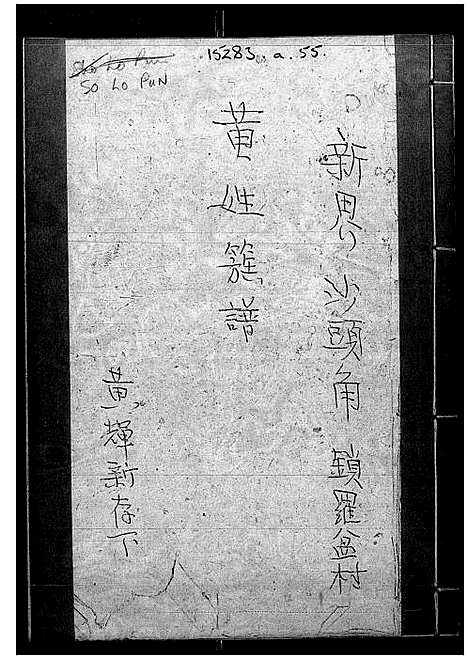 15283. a. 55.
So Lo Pun
SO LO PUN
新界沙頭角鎖羅盆村
黃姓簇譜
黃輝新存下